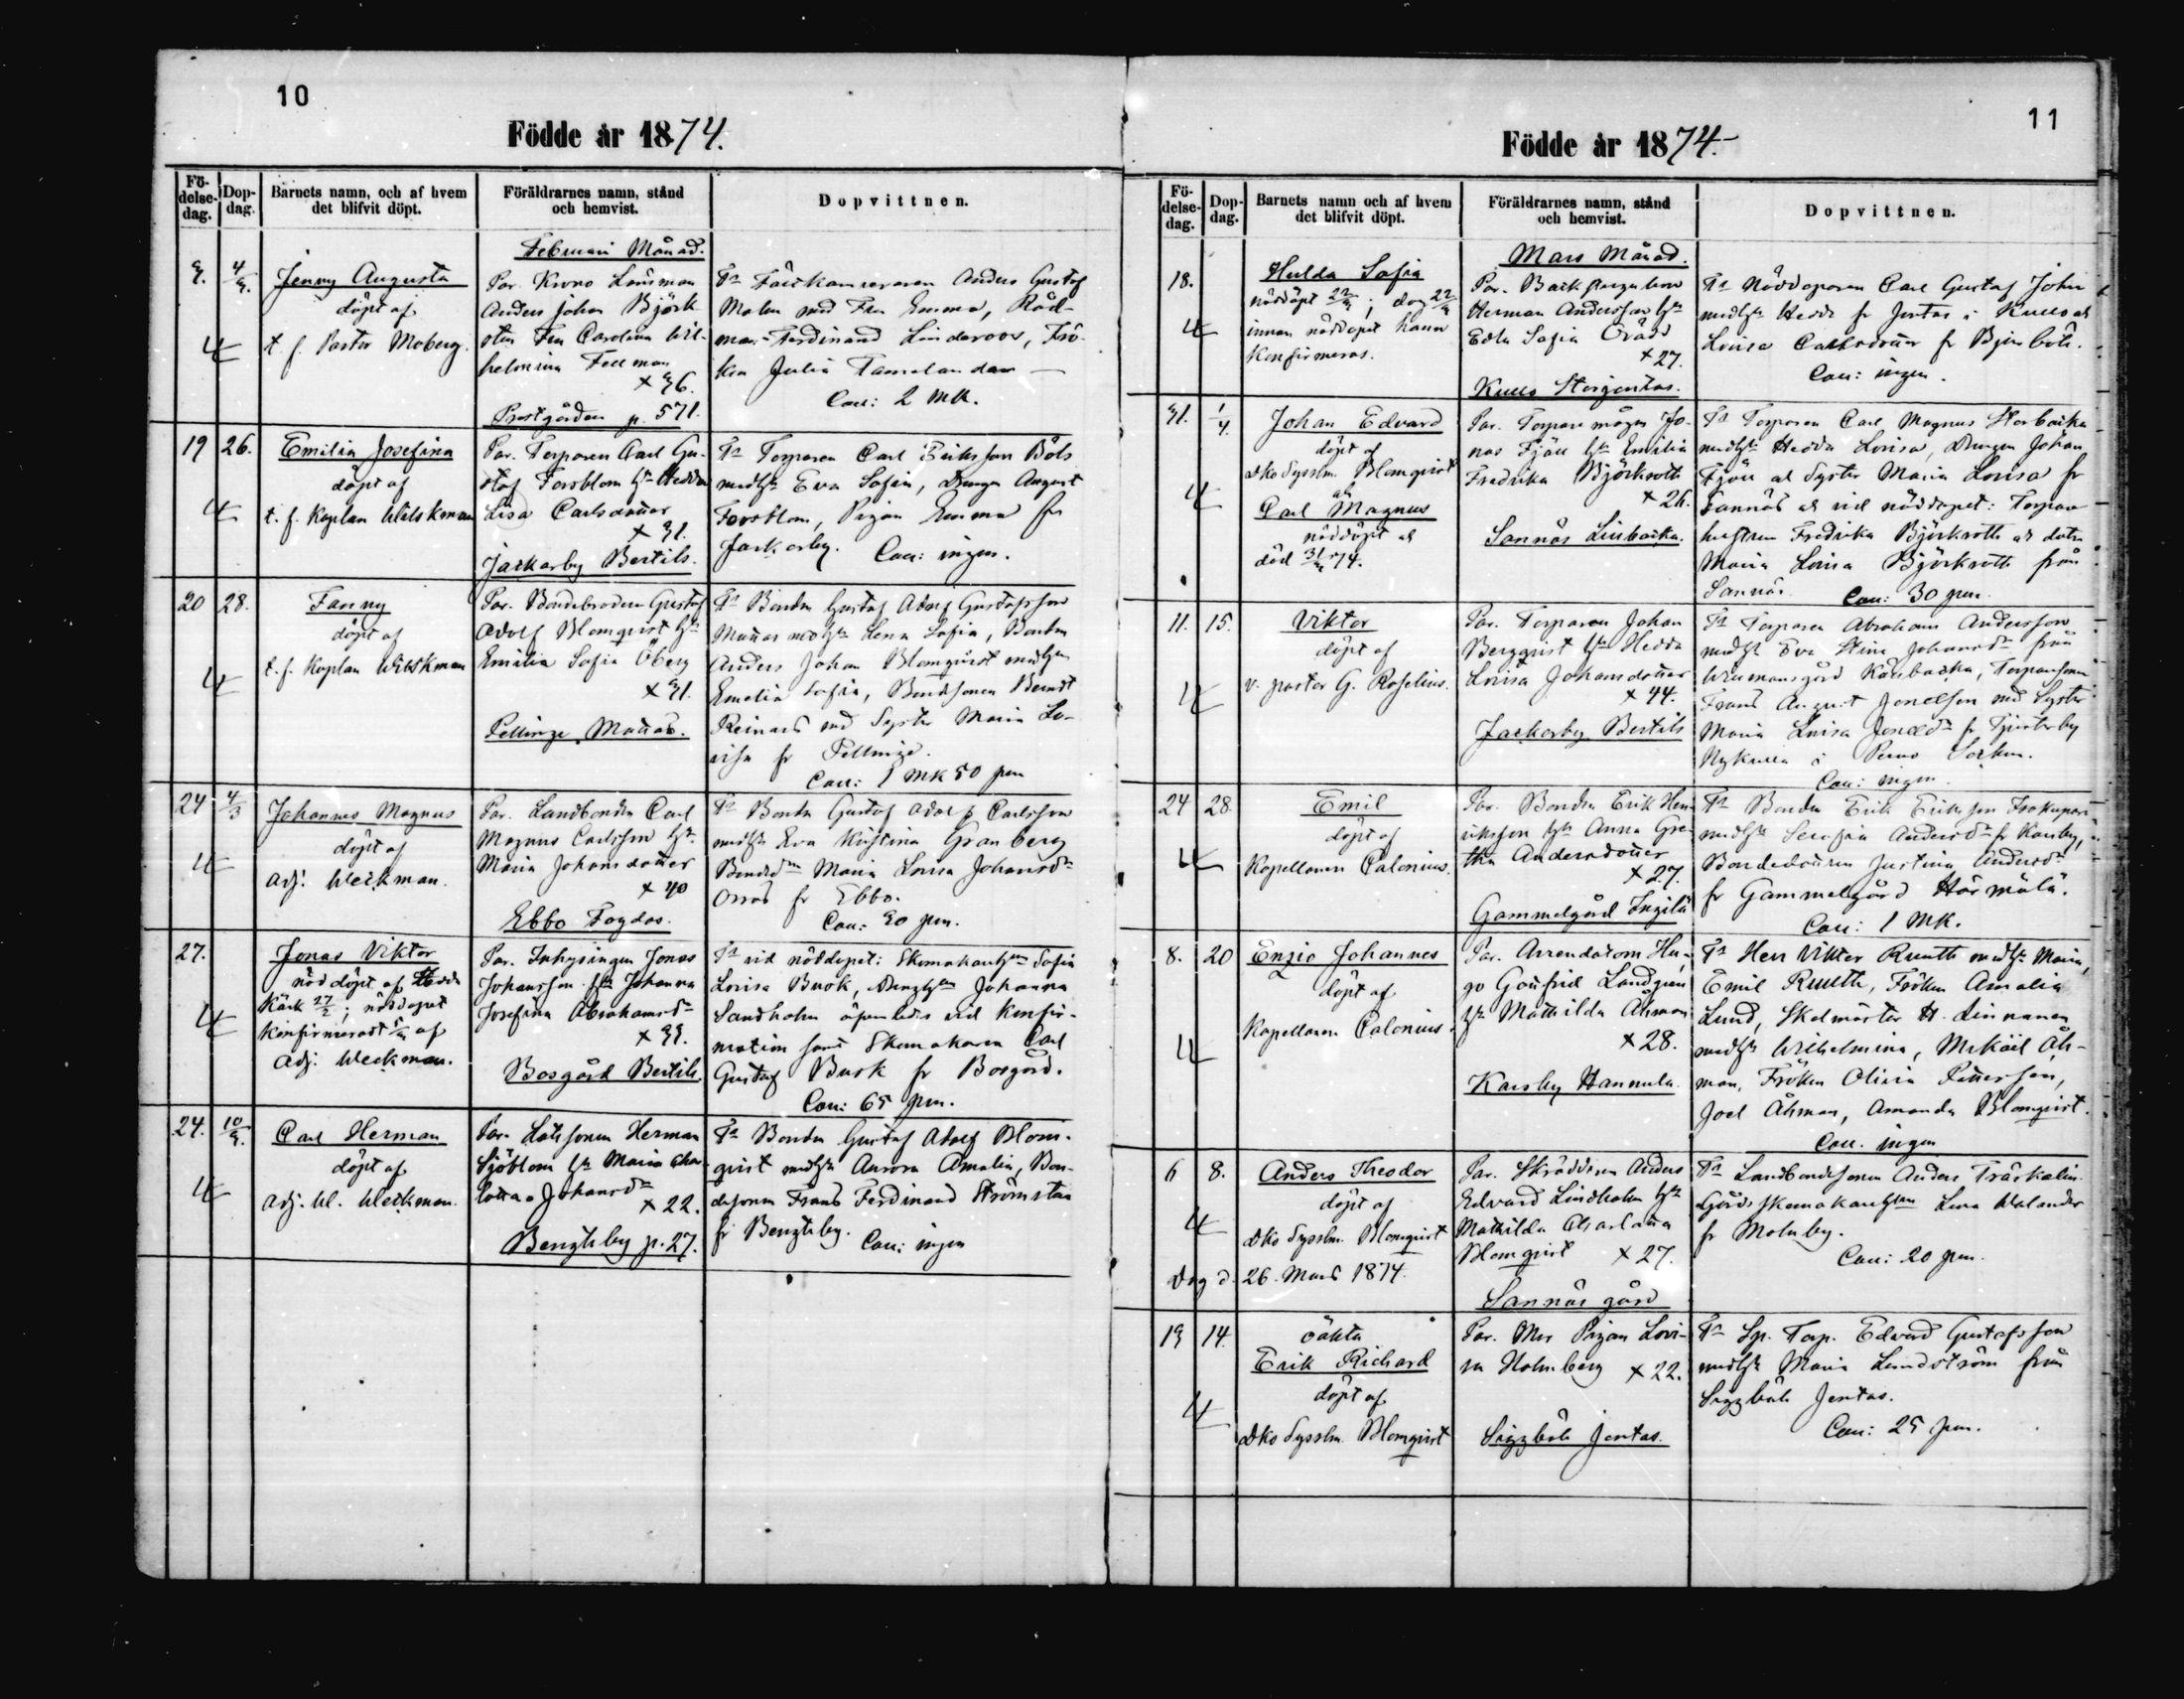 10
Födde år 1874.
Fö-
delse-
dag.
Dop-
dag.
Barnets namn, och af hvem
det blifvit döpt.
Föräldrarnes namn, stånd
och hemvist.
Dopvittnen.
Februari Månad.
Jenny Augusta
döpt af
t. f. Pastor Moberg.
Par. Krono Länsman
Anders Johan Björk
sten Fru Carolina Wil-
helmina Fellman
Prestgården p. 571.
Anders Gustaf
Malm med Fru Emma, Råd-
man Ferdinand Linderoos, Frö-
ken Julia Tamelander
Coll: 2 Mk.
19 26.
Emilia Josefina
döpt af
t. f. Kaplan
Par. Torparen Carl Gu-
staf Forsblom hu Hedda
Lisa Carlsdotter
Jackarby Bertils.
Torparen Carl Eriksson Böls
medhu Eva Sofia, Drengen August
Forsblom, Pigan Emma fr
Jackarby. Coll: ingen.
20 28.
Fanny
döpt af
t. f. Kaplan
Par. Bondebrodern Gustaf
Adolf Blomqvist hu
Emilia Sofia Öberg
Pellinge Mattas.
Bonden Gustaf Adolf Gustafsson
Mattas medhu Lena Sofia, Bonden
Anders Johan Blomqvist medhu
Emelia Sofia, Bondsonen Berndt
Reinard med Syster Maria Lo-
visa fr Pellinge.
Coll: 1 Mk 50 pen
24 4/3
Johannes Magnus
döpt af
Adj. Weckman.
Par. Landbonden Carl
Magnus Carlsson hu
Maria Johansdotter
x 40
Ebbo Fogdas.
Bonden Gustaf Adolf Carlsson
medhu Eva Kristina Granberg
Maria Lovisa Johansdr
Orras fr Ebbo.
27.
Jonas Viktor
nöddöpt af Hedda
Käck 27/2; nöddopet
konfirmeradt af
Adj. Weckman.
Par. Inhysingen Jonas
Johansson hu Johanna
Josefina Abrahamsdr
Bosgård Bertils.
vid nöddopet: Sofia
Lovisa Busk, Johanna
Sandholm äfvenledes vid konfir-
mation samt Skomakaren Carl
Gustaf Busk fr Bosgård.
Coll: 65 pen.
24.
Carl Herman
döpt af
Adj. W. Weckman.
Par. Herman
Sjöblom hu Maria Char-
lotta Johansdr
x 22.
Bengtsby p. 27.
Bonden Gustaf Adolf Blom-
qvist medhu Aurora Amalia, Bon-
desonen Frans Ferdinand Strömsten
fr Bengtsby. Coll: ingen
11
Födde år 1874.
Fö-
delse-
dag.
Dop-
dag.
Barnets namn och af hvem
det blifvit döpt.
Föräldrarnes namn, stånd
och hemvist.
Dopvittnen.
Mars Månad.
18.
Hulda Sofia
nöddöpt ; dog
innan nöddopet hann
konfirmeras.
Par.
Herman Andersson hu
Edla Sofia
x 27.
Kullo Storjentas.
Carl Gustaf John
medhu Hedda fr Jentas i Kullo och
Lovisa Carlsdotter fr
Coll: ingen.
1/4.
Johan Edvard
döpt af
Dko Sysslm. Blomqvist
och
Carl Magnus
nöddöpt och
död 74.
Par. Torparemågen Jo-
nas Fjäll hu Emilia
Fredrika Björkroth
x 26.
Sannäs Linbacka.
Torparen Carl Magnus Storbacka
medhu Hedda Lovisa, Drengen Johan
Fjäll och Syster Maria Lovisa fr
Sannäs och vid nöddopet: Torpare
hustrun Fredrika Björkroth och dotter
Maria Lovisa Björkroth från
Sannäs. Coll: 30 pen.
11. 15.
Viktor
döpt af
v. pastor G. Roselius.
Par. Torparen Johan
Bergqvist hu Hedda
Lovisa Johansdotter
x 44.
Jackarby Bertils
Torparen Abraham Andersson
medhu Eva Stina Johansdr från
Torparesonen
Frans August med Syster
Maria Lovisa fr
i Perno Socken.
Coll: ingen.
24 28.
Emil
döpt af
Kapellanen Calonius.
Par. Bonden Erik Hen-
riksson hu Anna Gre-
tha Andersdotter
x 27.
Gammelgård Ingilä
Bonden Erik Eriksson
medhu Serafia Andersdr fr Karsby,
Bondedottern Justina Andersdr
fr Gammelgård Härmälä.
Coll: 1 Mk.
8. 20
Enzio Johannes
döpt af
Kapellanen Calonius.
Par. Arrendatorn Hu-
go Gottfrid Landgren
hu Mathilda Åhman
x 28.
Karsby Hannula.
Herr Viktor Ruuth medhu Maria,
Emil Ruuth, Fröken Amalia
Lund, Skolmäster H. Linnanen
medhu Wilhelmina, Mikael Åh-
man, Fröken Olivia Pettersson,
Joel Åhman, Amanda Blomqvist.
Coll. ingen
6 8.
Anders Theodor
döpt af
Dko Sysslm. Blomqvist
Dog d. 26. Mars 1874.
Par. Skräddaren Anders
Edvard Lindholm hu
Mathilda Charlotta
Blomqvist x 27.
Sannäs gård
Landbondesonen Anders
Lena Welander
fr Molnby.
Coll: 20 pen.
19 14.
oäkta
Erik Richard
döpt af
Dko Sysslm. Blomqvist
Par. Mor Pigan Lovi-
sa Holmberg x 22.
Siggböle Jentas.
Sp. Torp. Edvard Gustafsson
medhu Maria Lundström från
Siggböle Jentas.
Coll: 25 pen.